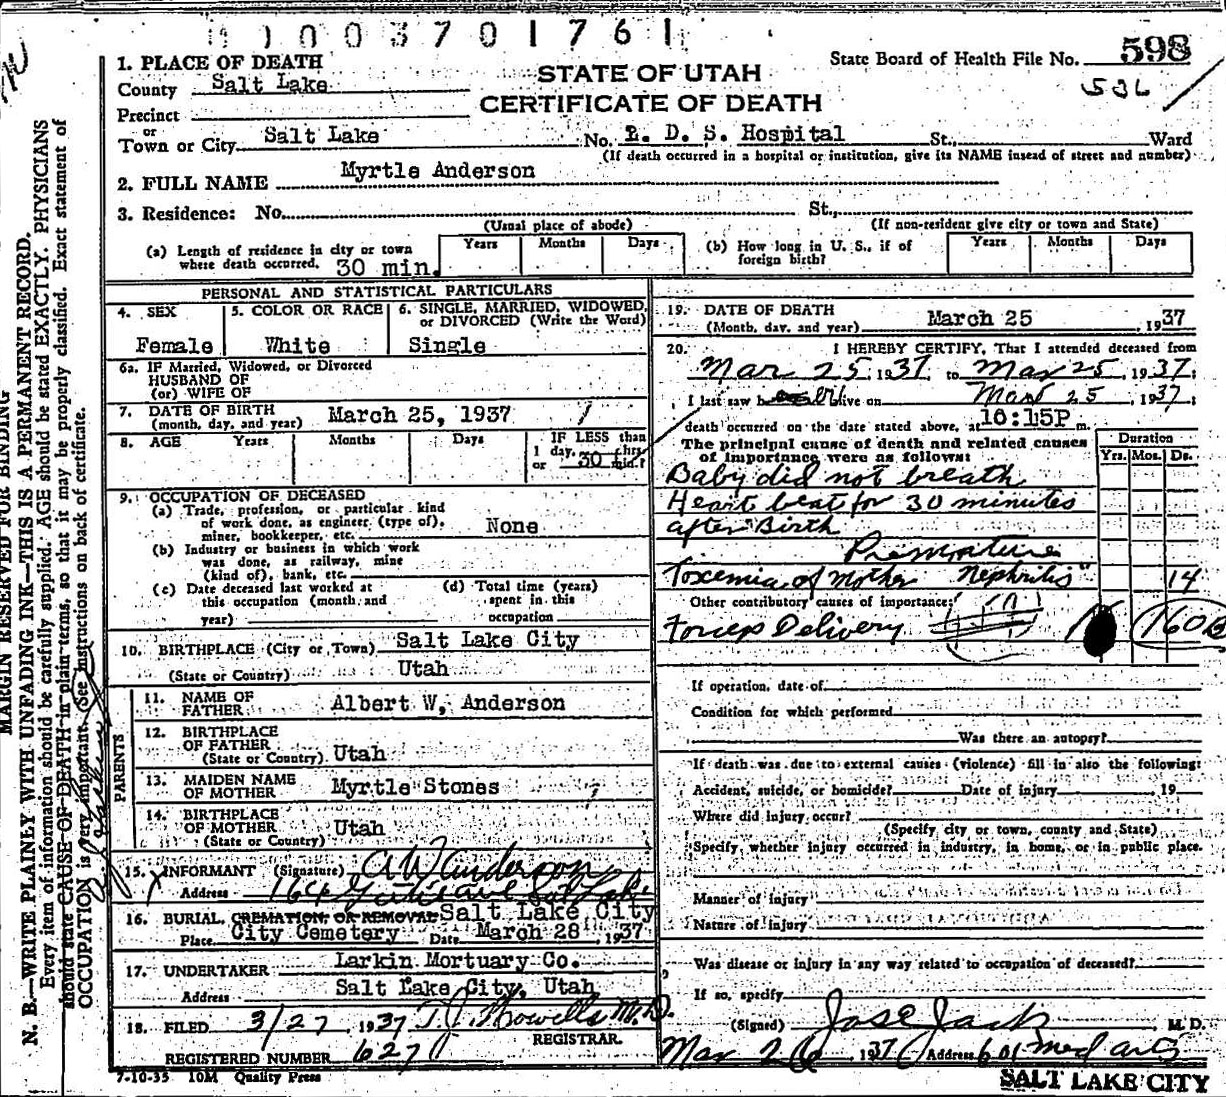 003701761
State Board of Health File No. 598
536
STATE OF UTAH
CERTIFICATE OF DEATH
1. PLACE OF DEATH
County Salt Lake
Precinct
or
Town or City Salt Lake No. L. D. S. Hospital St., Ward
(If death occurred in a hospital or institution, give its NAME insead of street and number)
2. FULL NAME Myrtle Anderson
3. Residence: No. St.,
(Usual place of abode) (If non-resident give city or town and State)
(a) Length of residence in city or town where death occurred. 30 min. Years Months Days
(b) How long in U. S., if of foreign birth? Years Months Days
PERSONAL AND STATISTICAL PARTICULARS
4. SEX Female
5. COLOR OR RACE White
6. SINGLE, MARRIED, WIDOWED, or DIVORCED (Write the Word) Single
6a. IF Married, Widowed, or Divorced
HUSBAND OF
(or) WIFE OF
7. DATE OF BIRTH (month, day, and year) March 25, 1937
8. AGE Years Months Days IF LESS than 1 day, hrs. or 30 min.?
9. OCCUPATION OF DECEASED
(a) Trade, profession, or particular kind of work done, as engineer, (type of), miner, bookkeeper, etc. None
(b) Industry or business in which work was done, as railway, mine (kind of), bank, etc.
(c) Date deceased last worked at this occupation (month and year)
(d) Total time (years) spent in this occupation
10. BIRTHPLACE (City or Town) Salt Lake City
(State or Country) Utah
PARENTS
11. NAME OF FATHER Albert W. Anderson
12. BIRTHPLACE OF FATHER (State or Country) Utah
13. MAIDEN NAME OF MOTHER Myrtle Stones
14. BIRTHPLACE OF MOTHER (State or Country) Utah
15. INFORMANT (Signature) A W Anderson
Address
16. BURIAL, CREMATION, OR REMOVAL Salt Lake City
Place City Cemetery Date March 28, 1937
17. UNDERTAKER Larkin Mortuary Co.
Address Salt Lake City, Utah
18. FILED 3/27, 1937 T. J. Howells M.D.
REGISTRAR.
REGISTERED NUMBER 627
7-10-35 10M Quality Press
19. DATE OF DEATH
(Month, day, and year) March 25, 1937
20. I HEREBY CERTIFY, That I attended deceased from
Mar 25, 1937, to Mar 25, 1937,
I last saw h alive on Mar 25, 1937,
death occurred on the date stated above, at 10:15P m.
The principal cause of death and related causes of importance were as follows:
Duration
Yrs. Mos. Ds.
Baby did not breath
Heart beat for 30 minutes
after Birth
Premature
Toxemia of Mother "Nephritis" 14
Other contributory causes of importance:
Forcep Delivery 160
If operation, date of
Condition for which performed
Was there an autopsy?
If death was due to external causes (violence) fill in also the following:
Accident, suicide, or homicide? Date of injury 19
Where did injury occur?
(Specify city or town, county and State)
Specify whether injury occurred in industry, in home, or in public place.
Manner of injury
Nature of injury
Was disease or injury in any way related to occupation of deceased?
If so, specify
(Signed) Jose Jack M. D.
Mar 26, 1937 Address 601 Med arts
SALT LAKE CITY
MARGIN RESERVED FOR BINDING
N. B.—WRITE PLAINLY WITH UNFADING INK—THIS IS A PERMANENT RECORD.
Every item of information should be carefully supplied. AGE should be stated EXACTLY. PHYSICIANS
should state CAUSE OF DEATH in plain terms, so that it may be properly classified. Exact statement of
OCCUPATION is very important. See instructions on back of certificate.